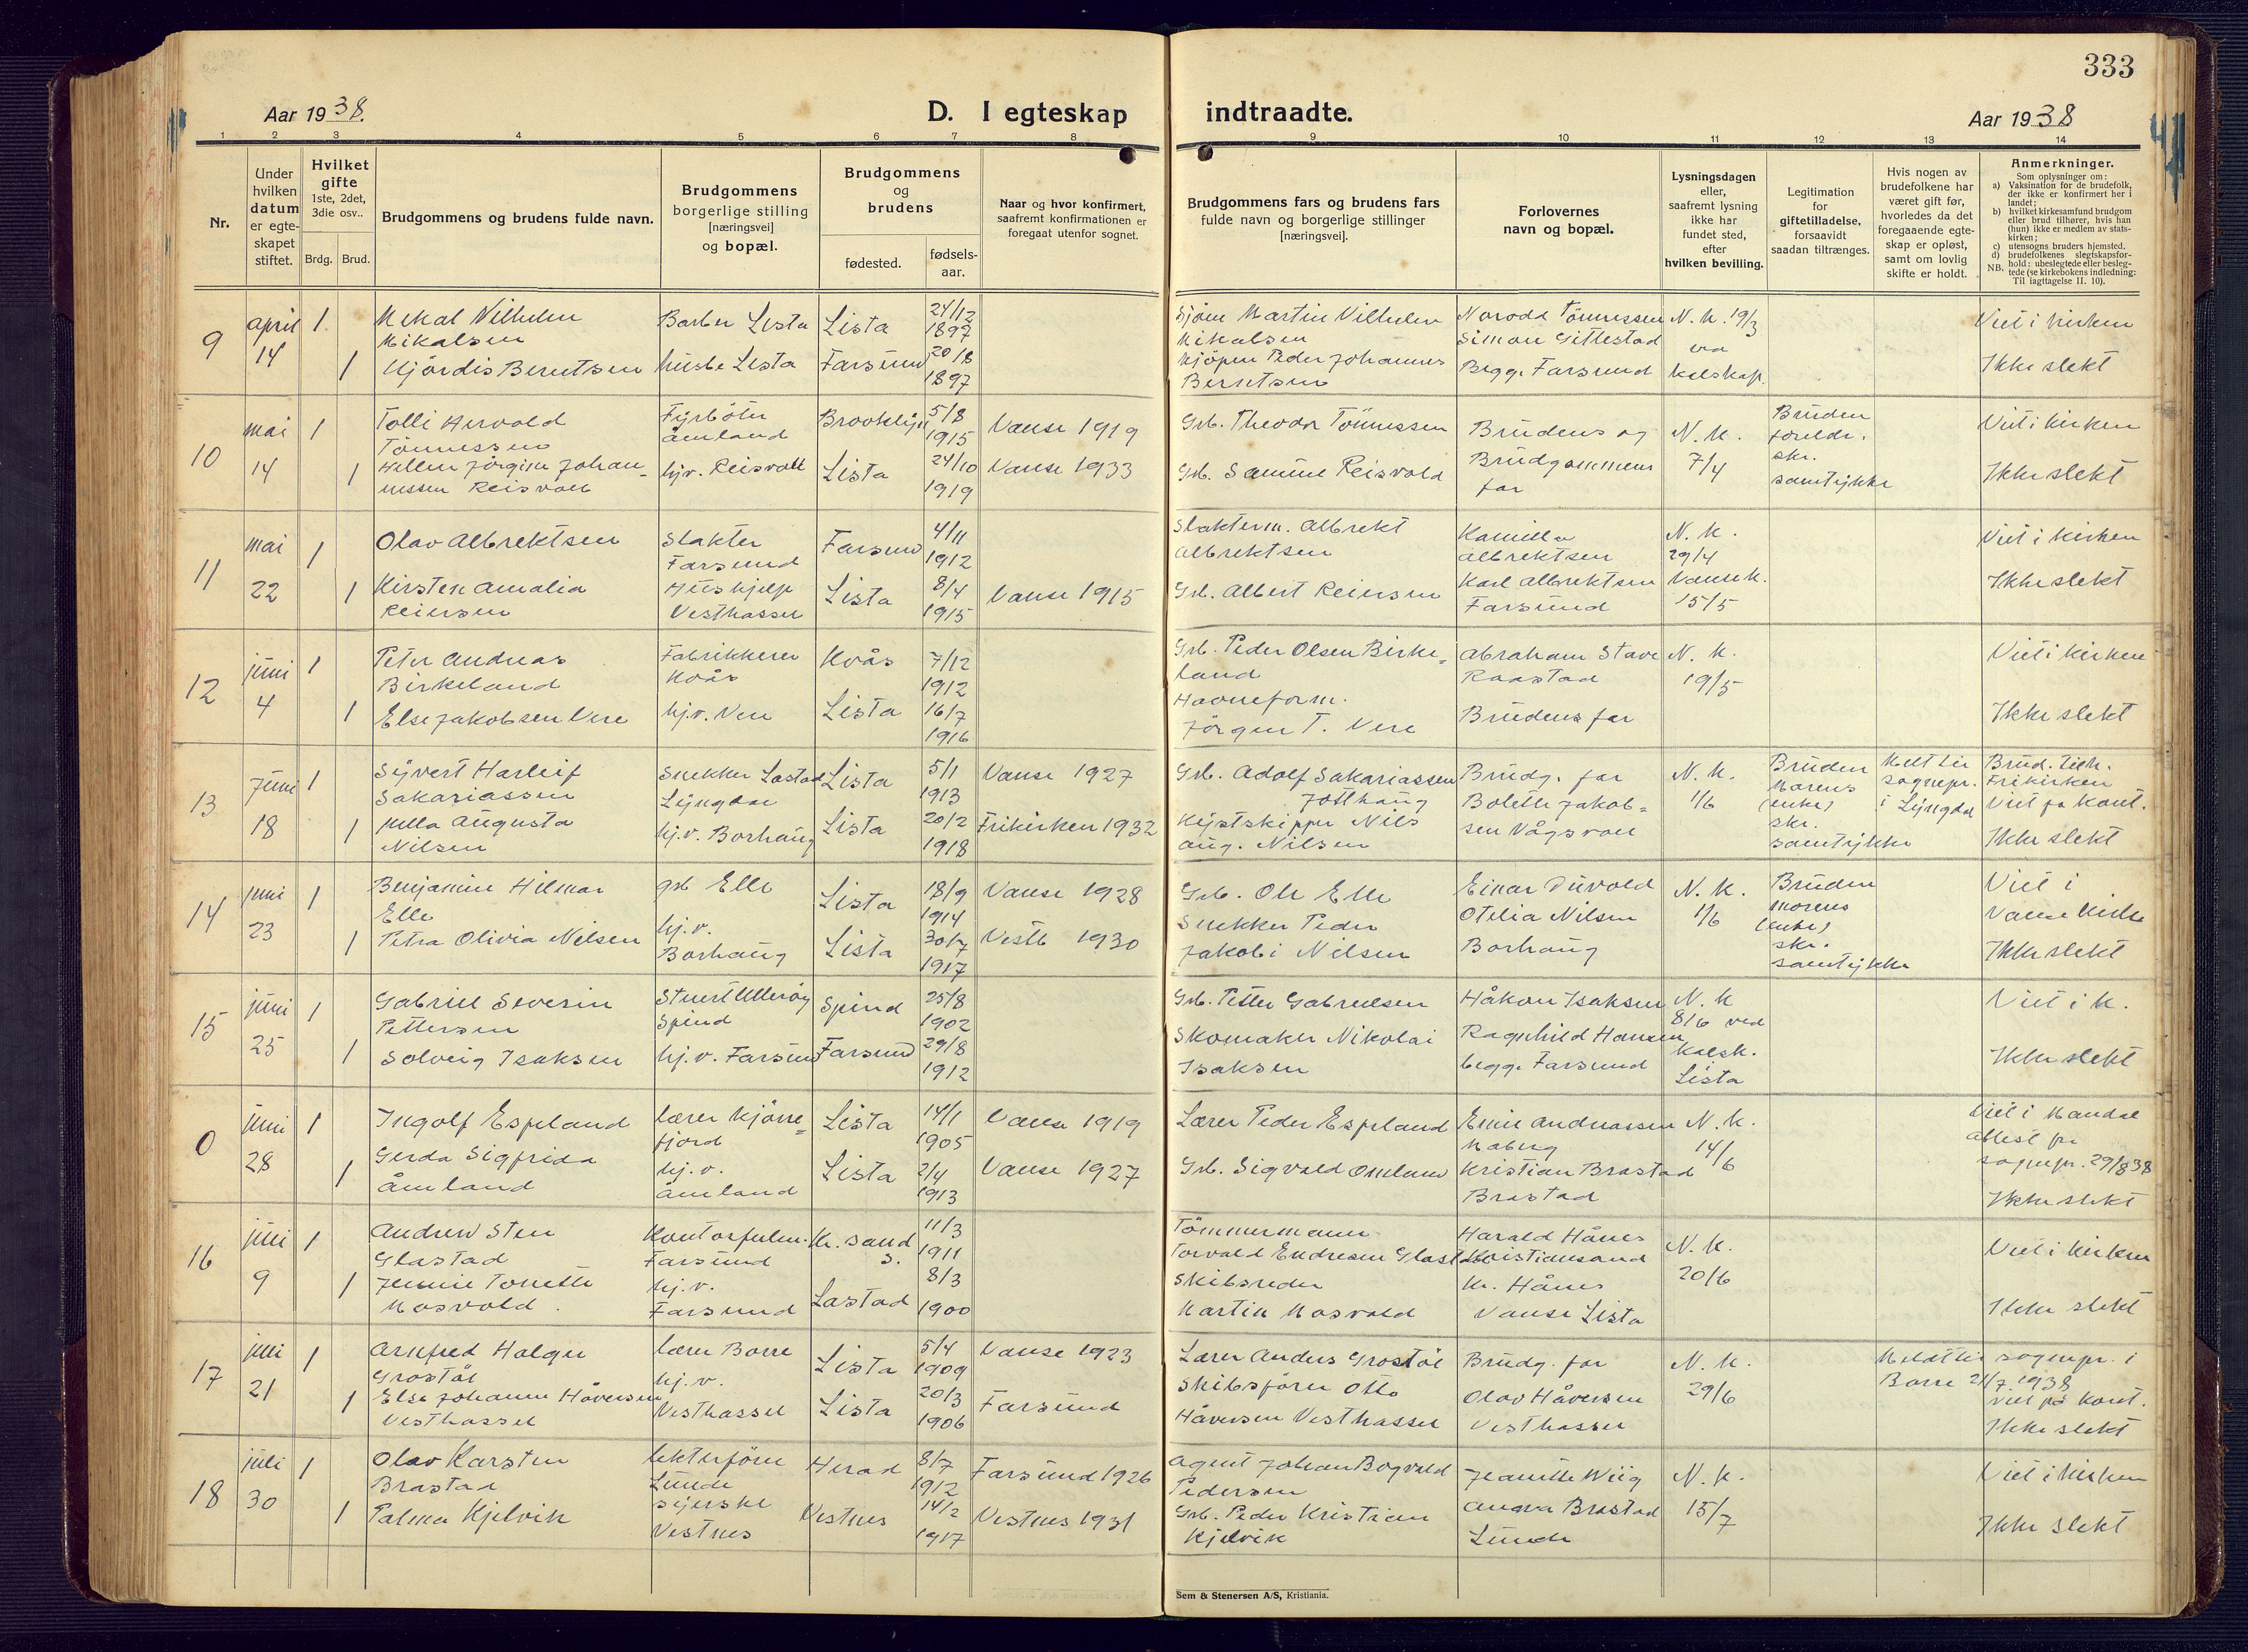 333
Aar 1938.
D. I egteskap
indtraadte.
Aar 1938
1 2 3 4 5 6 7 8 9 10 11 12 13 14
Nr.
Under hvilken datum er egteskapet stiftet.
Hvilket gifte 1ste, 2det, 3die osv..
Brdg. Brud.
Brudgommens og brudens fulde navn.
Brudgommens borgerlige stilling [næringsvei] og bopæl.
Brudgommens og brudens
fødested.
fødsels-aar.
Naar og hvor konfirmert, saafremt konfirmationen er foregaat utenfor sognet.
Brudgommens fars og brudens fars fulde navn og borgerlige stillinger [næringsvei].
Forlovernes navn og bopæl.
Lysningsdagen eller, saafremt lysning ikke har fundet sted, efter hvilken bevilling.
Legitimation for giftetilladelse, forsaavidt saadan tiltrænges.
Hvis nogen av brudefolkene har været gift før, hvorledes da det foregaaende egteskap er opløst, samt om lovlig skifte er holdt.
Anmerkninger.
Som oplysninger om:
a) Vaksination for de brudefolk, der ikke er konfirmert her i landet;
b) hvilket kirkesamfund brudgom eller brud tilhører, hvis han (hun) ikke er medlem av statskirken;
c) utensogns bruders hjemsted.
d) brudefolkenes slegtskapsforhold: ubeslegtede eller beslegtede (se kirkebokens indledning:
NB. Til iagttagelse II. 10).
9 april 14 1
Mikal Vilhelm Mikalsen
Barber Lista
Lista
24/12 1897
1 Hjördis Berntsen
husbe Lista
Farsund
20/8 1897
Martin Vilhelm Mikalsen
Peder Johannes Berntsen
Tönnessen
Simon Gittlestad
Begge Farsund
N. K. 19/3
Viet i kirken
Ikke slekt
10 mai 14 1
Tolli Hervold Tönnessen
Fyrböter Åmland
Brooklyn
5/8 1915
Vanse 1919
1 Hellen Jörgine Johannessen Reisvoll
hj.v. Reisvoll
Lista
24/10 1919
Vanse 1933
Grb. Theodor Tönnessen
Grb. Samuel Reisvold
Brudens og Brudgommens far
N. K. 7/4
Bruden foreldr. skr. samtykke
Viet i kirken
Ikke slekt
11 mai 22 1
Olav Albrektsen
Slakter Farsund
Farsund
4/11 1912
1 Kirsten Amalia Reiersen
Hushjelp Vesthassel
Lista
8/4 1915
Vanse 1915
Slakterm. Albrekt Albrektsen
Grb. Albert Reiersen
Kamilla Albrektsen
Karl Albrektsen Farsund
N. K. 29/4
Vanse k. 15/5
Viet i kirken
Ikke slekt
12 juni 4 1
Peter Andreas Birkeland
Fabrikkeier Kvås
Kvås
7/12 1912
1 Else Jakobsen Vere
hj.v. Vere
Lista
16/7 1916
Grb. Peder Olsen Birkeland
Havneform. Jörgen T. Vere
Abraham Stave Raastad
Brudens far
N. K. 19/5
Viet i kirken
Ikke slekt
13 Juni 18 1
Syvert Harleif Sakariassen
Snekker Lastad Lyngdal
Lista
5/1 1913
Vanse 1927
1 Augusta Nilsen
hj.v. Borhaug
Lista
20/2 1918
Frikirken 1932
Grb. Adolf Sakariassen Jøllhaug
Nils Aug. Nilsen
Brudg. far
Bolette Jakobsen Vågsvoll
N. K. 1/6
Bruden morens (enke) skr. samtykke
Meldt til sognepr. i Lyngdal
Brud. tilh. Frikirken
Viet på kont.
Ikke slekt
14 juni 23 1
Benjamin Hilmar Elle
grb Elle
Lista
18/9 1914
Vanse 1928
1 Petra Olivia Nilsen
hj.v. Borhaug
Lista
30/7 1917
Vestb 1930
Grb. Ole Elle
Snekker Peder Jakobi Nilsen
Einar Duvold
Otelia Nilsen Borhaug
N. K. 1/6
Bruden morens (enke) skr. samtykke
Viet i Vanse kirke
Ikke slekt
15 juni 25 1
Gabriel Severin Pettersen
Stuert Ulleröy Spind
Spind
25/8 1902
1 Solveig Isaksen
hj.v. Farsund
Farsund
29/8 1912
Grb. Petter Gabrielsen
Skomaker Nikolai Isaksen
Håkon Isaksen
Ragnhild Hansen
begge Farsund
N. K 8/6 ved kalsk. Lista
Viet i k.
Ikke slekt
0 juni 28 1
Ingolf Espeland
lærer Kjörrefjord
Lista
14/1 1905
Vanse 1919
1 Gerda Sigfrida Åmland
hj.v. Åmland
Lista
2/4 1913
Vanse 1927
Lærer Peder Espeland
Grb. Sigvald Omland
Emil Andreassen Maberg
Kristian Brastad Brastad
N. K. 14/6
Viet i Mandal
attest fra sognepr. 29/8 38
Ikke slekt
16 juli 9 1
Andrew Sten Glastad
Kontorfulm. Farsund
Kr. sand S.
11/3 1911
1 Jennie Tonette Mosvold
hj.v. Farsund
Lastad
8/3 1900
Tömmermann Torvald Endresen Glastad
Skibsreder Martin Mosvold
Harald Hånes Kristiansand
Kr. Hånes Vanse Lista
N. K. 20/6
Viet i kirken
Ikke slekt
17 juli 21 1
Arnfred Holger Grostöl
lærer Borre
Lista
5/4 1909
Vanse 1923
1 Else Johanne Håversen Vesthassel
hj.v. Vesthassel
Lista
20/3 1906
Farsund
Lærer Anders Grostöl
Skibsförer Otto Håversen Vesthassel
Brudg. far
Olav Håversen Vesthassel
N. K. 29/6
Meldt til sognepr. i Borre 21/7 1938
viet på kont.
Ikke slekt
18 juli 30 1
Olav Karsten Brastad
lekterförer Lunde
Herad
8/7 1912
Farsund 1926
1 Palma Kjelvik
syerske Vestnes
Vestnes
14/2 1917
Vestnes 1931
Agent Johan Bogvald Pedersen
Grb. Peder Kristian Kjelvik
Jeanette Wiig
Andrea Brastad Lunde
N. K. 15/7
Viet i kirken
Ikke slekt
Sem & Stenersen A/S, Kristiania.